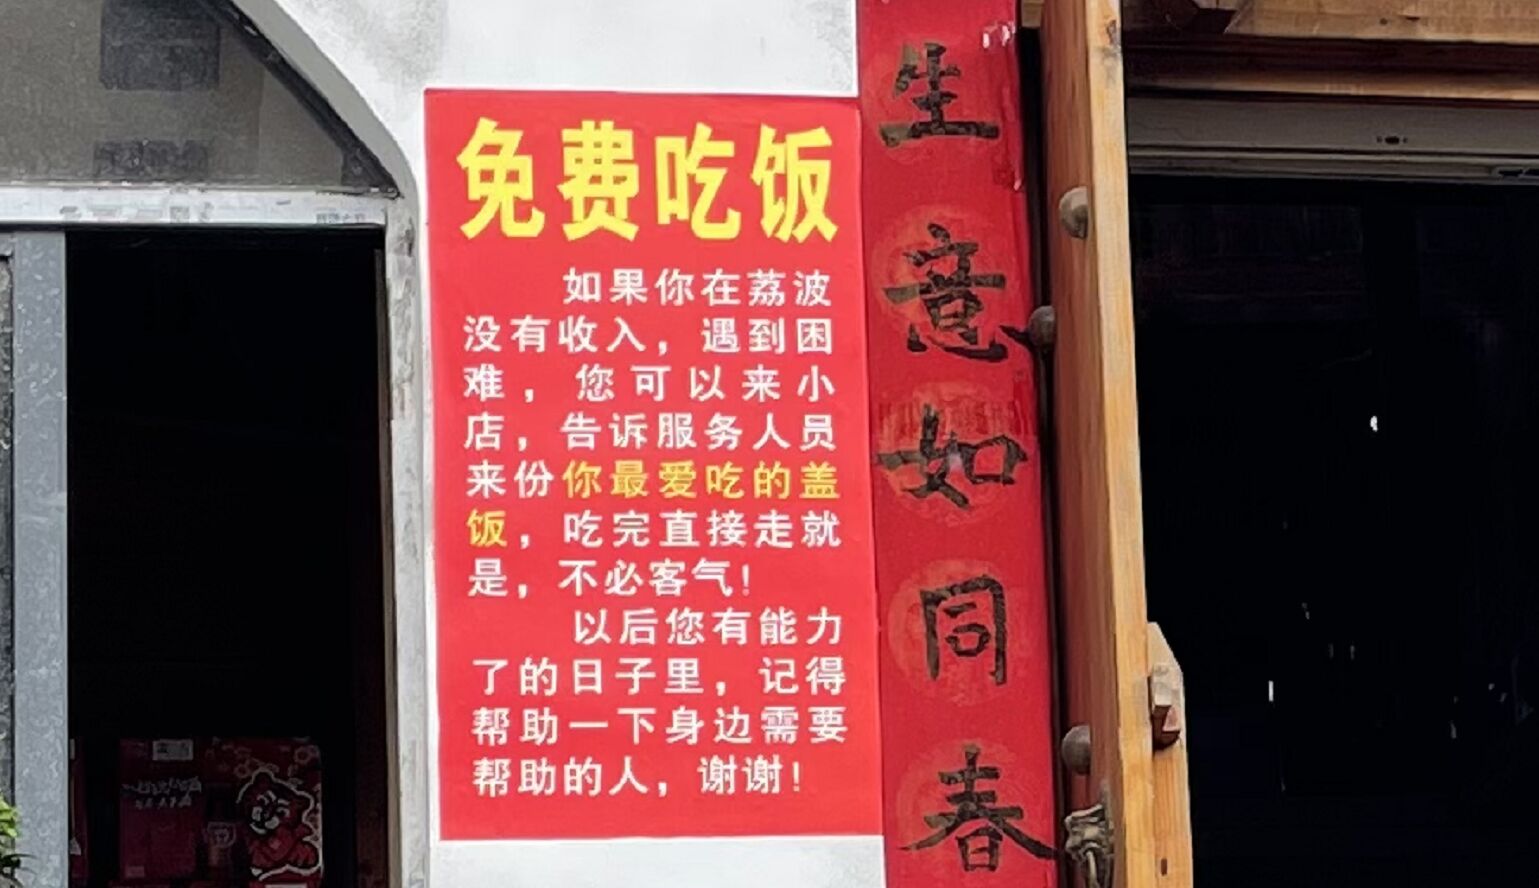 免费吃饭
如果你在荔波
没有收入，遇到困
难，您可以来小
店，告诉服务人员
来份你最爱吃的盖
饭，吃完直接走就
是，不必客气！
以后您有能力
了的日子里，记得
帮助一下身边需要
帮助的人，谢谢！
生意如同春